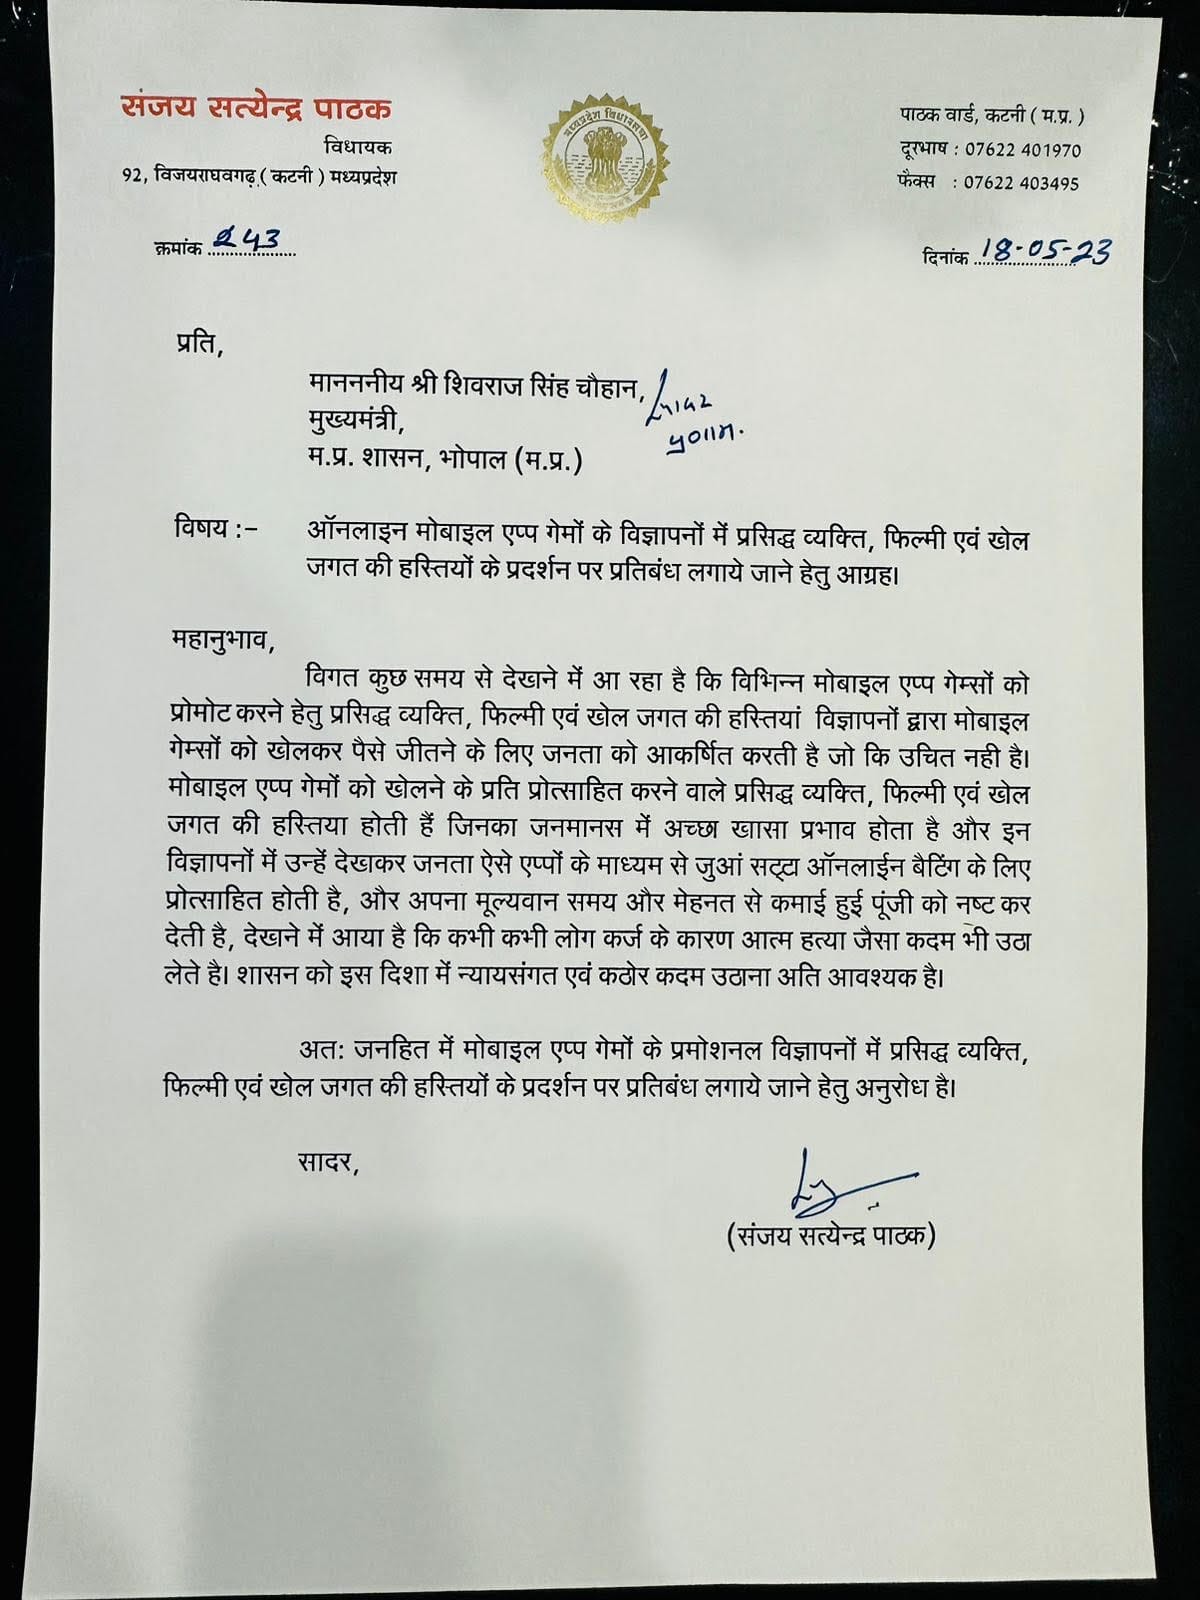 संजय सत्येन्द्र पाठक
विधायक
92, विजयराघवगढ़ ( कटनी ) मध्यप्रदेश
मध्यप्रदेश विधानसभा
पाठक वार्ड, कटनी ( म.प्र. )
दूरभाष : 07622 401970
फैक्स : 07622 403495
क्रमांक 243
दिनांक 18-05-23
प्रति,
मानननीय श्री शिवराज सिंह चौहान,
सादर
प्रणाम.
मुख्यमंत्री,
म.प्र. शासन, भोपाल (म.प्र.)
विषय :– ऑनलाइन मोबाइल एप्प गेमों के विज्ञापनों में प्रसिद्ध व्यक्ति, फिल्मी एवं खेल
जगत की हस्तियों के प्रदर्शन पर प्रतिबंध लगाये जाने हेतु आग्रह।
महानुभाव,
विगत कुछ समय से देखने में आ रहा है कि विभिन्न मोबाइल एप्प गेम्सों को
प्रोमोट करने हेतु प्रसिद्ध व्यक्ति, फिल्मी एवं खेल जगत की हस्तियां विज्ञापनों द्वारा मोबाइल
गेम्सों को खेलकर पैसे जीतने के लिए जनता को आकर्षित करती है जो कि उचित नही है।
मोबाइल एप्प गेमों को खेलने के प्रति प्रोत्साहित करने वाले प्रसिद्ध व्यक्ति, फिल्मी एवं खेल
जगत की हस्तिया होती हैं जिनका जनमानस में अच्छा खासा प्रभाव होता है और इन
विज्ञापनों में उन्हें देखाकर जनता ऐसे एप्पों के माध्यम से जुआं सट्टा ऑनलाईन बैटिंग के लिए
प्रोत्साहित होती है, और अपना मूल्यवान समय और मेहनत से कमाई हुई पूंजी को नष्ट कर
देती है, देखने में आया है कि कभी कभी लोग कर्ज के कारण आत्म हत्या जैसा कदम भी उठा
लेते है। शासन को इस दिशा में न्यायसंगत एवं कठोर कदम उठाना अति आवश्यक है।
अतः जनहित में मोबाइल एप्प गेमों के प्रमोशनल विज्ञापनों में प्रसिद्ध व्यक्ति,
फिल्मी एवं खेल जगत की हस्तियों के प्रदर्शन पर प्रतिबंध लगाये जाने हेतु अनुरोध है।
सादर,
(संजय सत्येन्द्र पाठक)